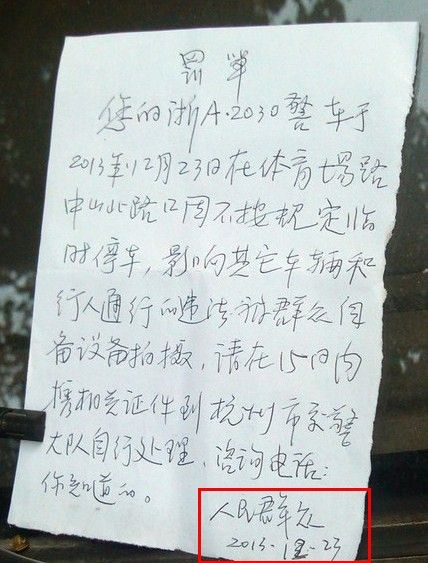 罚单
您的浙A·2030警车于
2013年12月23日在体育场路
中山北路口因不按规定临
时停车,影响其它车辆和
行人通行的违法被群众自
备设备拍摄,请在15日内
携相关证件到杭州市交警
大队自行处理,咨询电话:
你知道的。
人民群众
2013-12-23